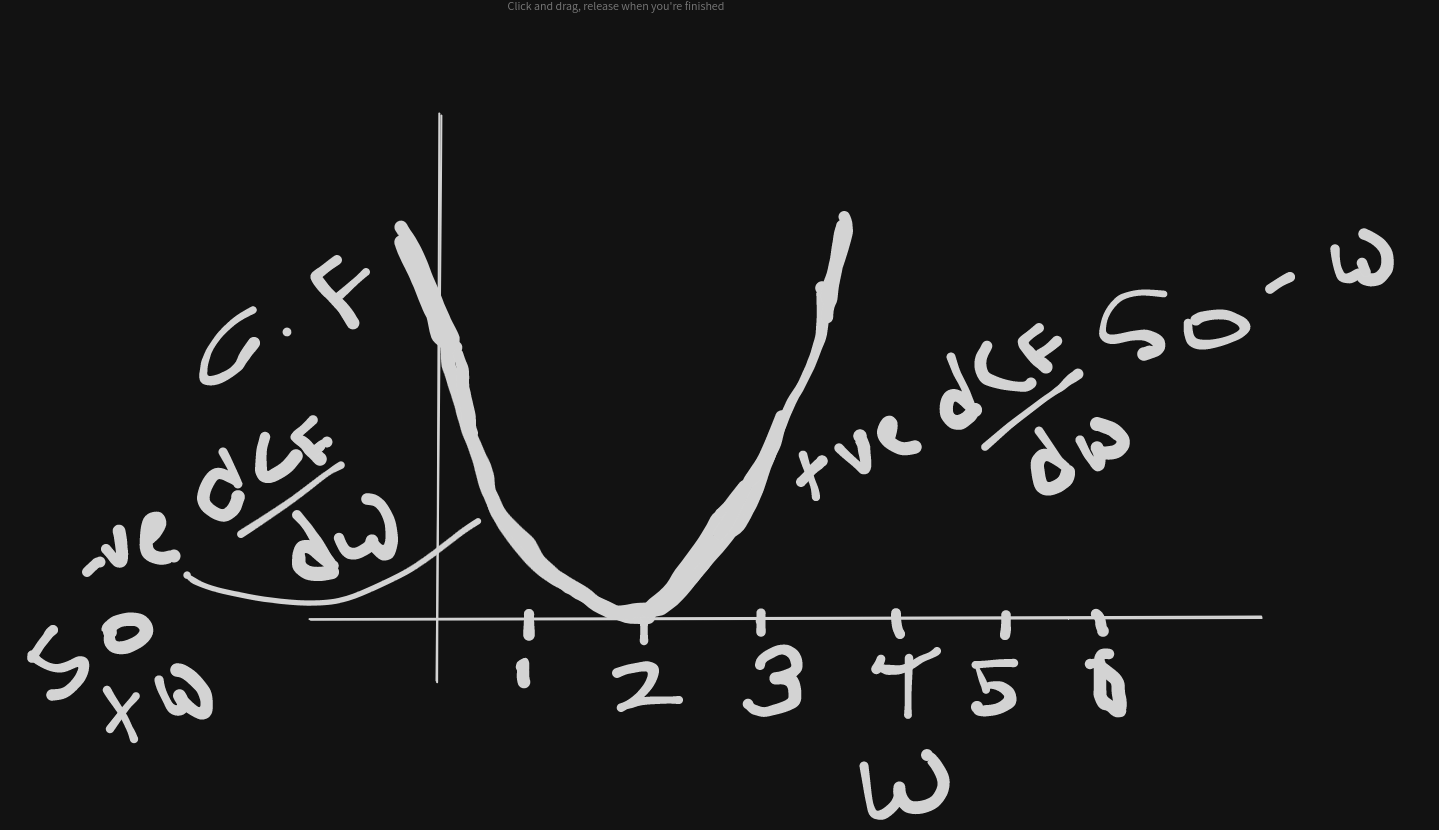 Click and drag, release when you're finished
C.F
-ve dCF/dw
so +w
+ve dCF/dw so -w
1 2 3 4 5 6
w